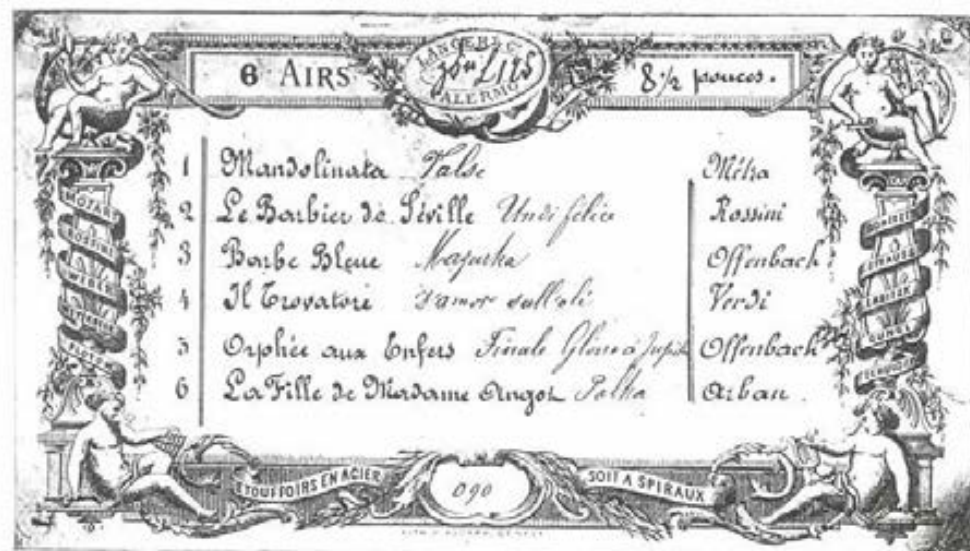 6 AIRS
LANGER & C.
Lirs
PALERMO
8 ½ pouces.
1 Mandolinata Valse Métra
2 Le Barbier de Séville Un di felice Rossini
3 Barbe Bleue Mazurka Offenbach
4 Il Trovatore D'amor sull'ali Verdi
5 Orphée aux Enfers Finale Gloire à Jupit Offenbach
6 La Fille de Madame Angot Polka Arban
MOZART
ROSSINI
WEBER
MEYERBEER
FLOTOW
STRAUSS
LABITZKY
GUNGL
ETOUFFOIRS EN ACIER
090
SOIT A SPIRAUX